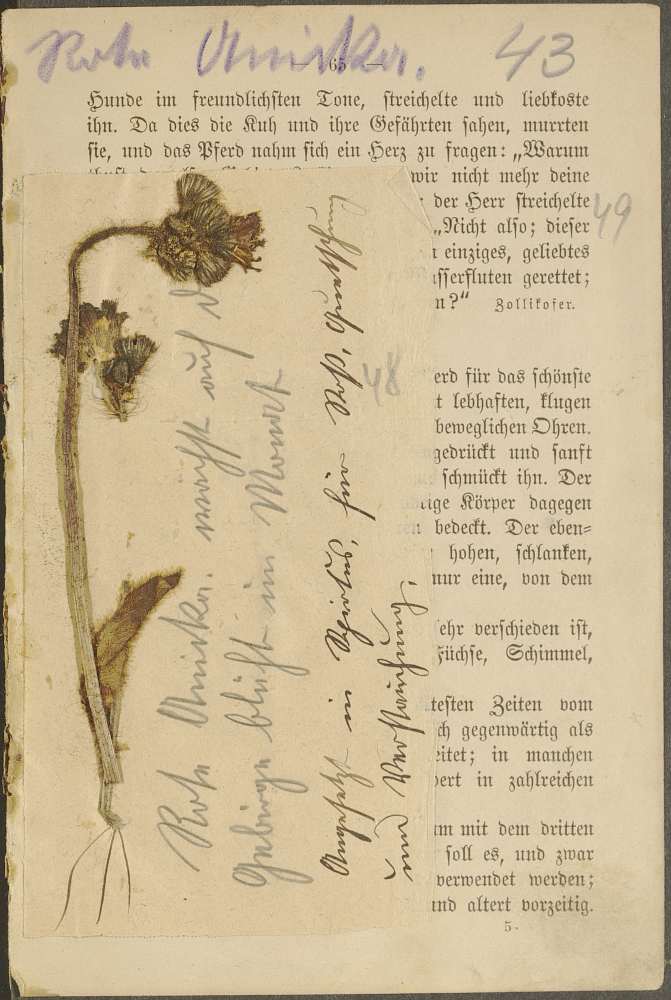 Rote Arnika. 43
— 65 —
Hunde im freundlichſten Tone, ſtreichelte und liebkoste
ihn. Da dies die Kuh und ihre Gefährten ſahen, murrten
ſie, und das Pferd nahm ſich ein Herz zu fragen: „Warum
wir nicht mehr deine
der Herr ſtreichelte
49
„Nicht alſo; dieſer
einziges, geliebtes
ſſerfluten gerettet;
n?“ Zollikofer.
erd für das ſchönſte
t lebhaften, klugen
beweglichen Ohren.
gedrückt und ſanft
ſchmückt ihn. Der
ige Körper dagegen
bedeckt. Der eben=
hohen, ſchlanken,
nur eine, von dem
ſehr verſchieden iſt,
Füchſe, Schimmel,
teſten Zeiten vom
ch gegenwärtig als
eitet; in manchen
dert in zahlreichen
um mit dem dritten
ſoll es, und zwar
verwendet werden;
und altert vorzeitig.
5.
48
Rote Arnika. wächſt auf d
Gebirge blüht im Monat
Angeſetzt in Spiritus, für
und Verſtauchung.